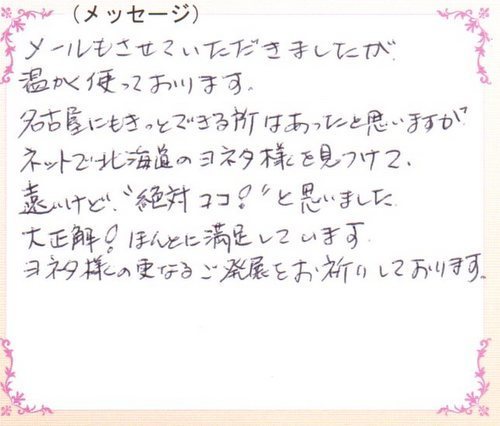 （メッセージ）
メールもさせていただきましたが、
温かく使っております。
名古屋にもきっとできる所はあったと思いますが
ネットで北海道のヨネタ様を見つけて、
遠いけど、“絶対ココ！”と思いました
大正解！ほんとに満足しています。
ヨネタ様の更なるご発展をお祈りしております。